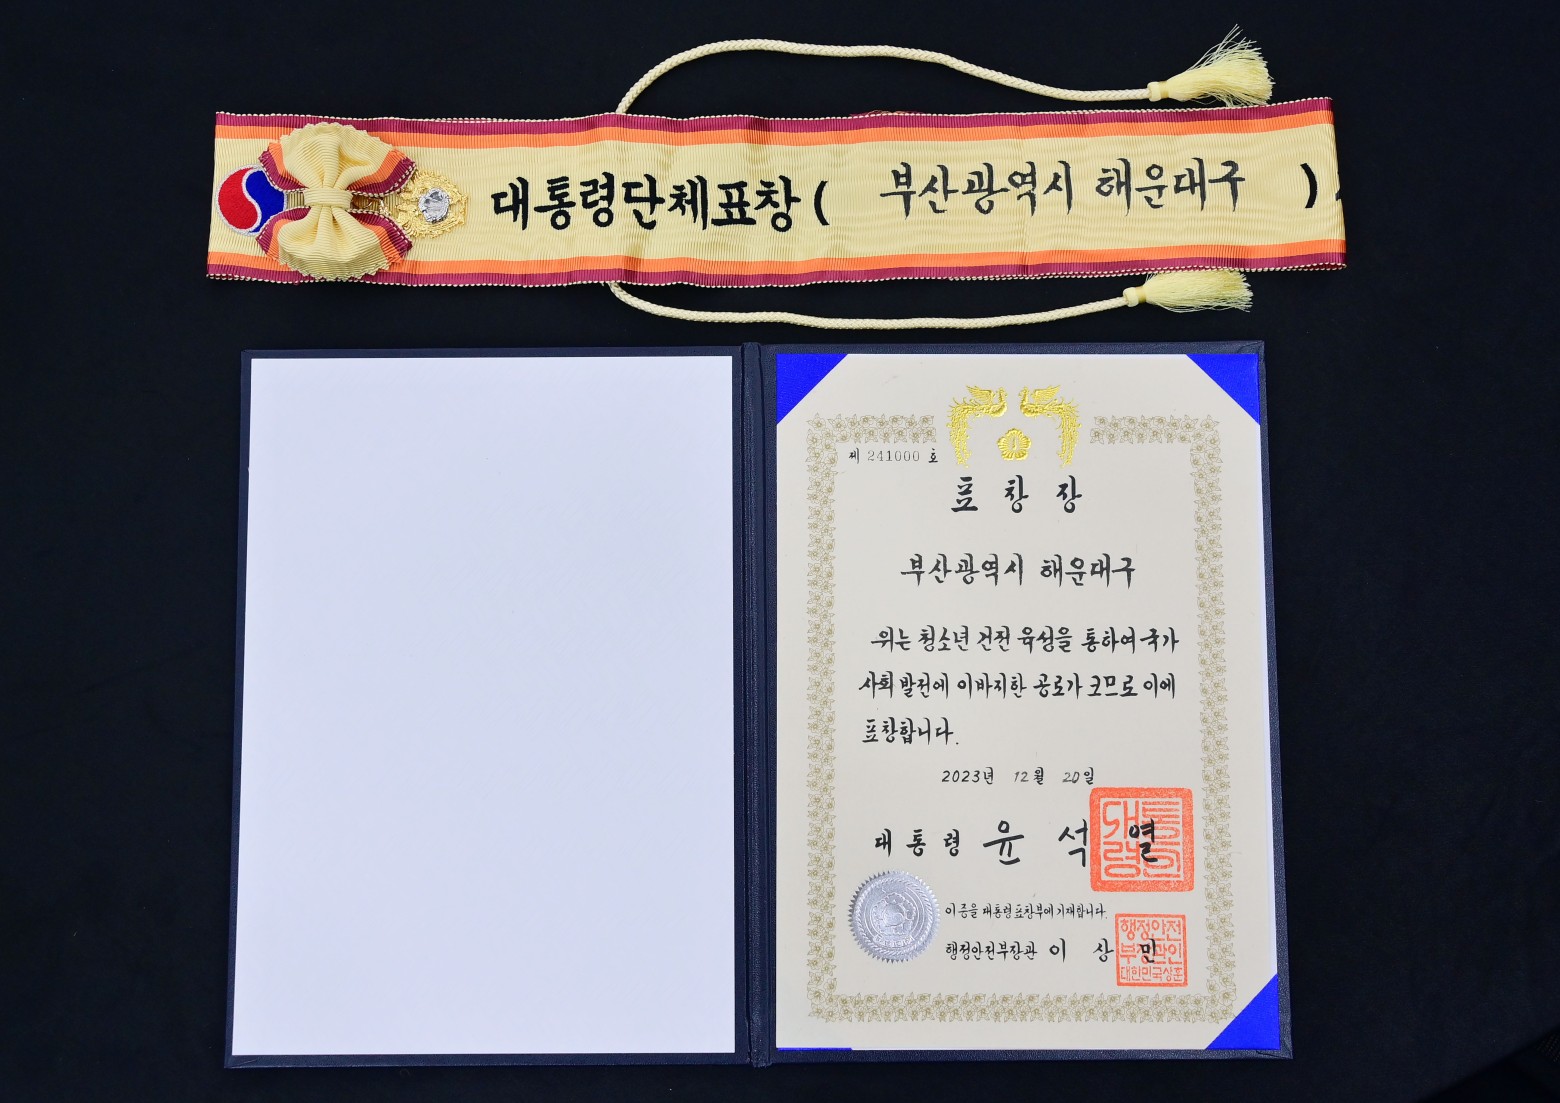 대통령단체표창( 부산광역시 해운대구 )
제 241000 호
표 창 장
부산광역시 해운대구
위는 청소년 건전 육성을 통하여 국가
사회 발전에 이바지한 공로가 크므로 이에
표창합니다.
2023년 12월 20일
대통령 윤 석 열
대통령의인
이 증을 대통령표창부에 기재합니다.
행정안전부장관 이 상 민
행정안전
부장관인
대한민국상훈